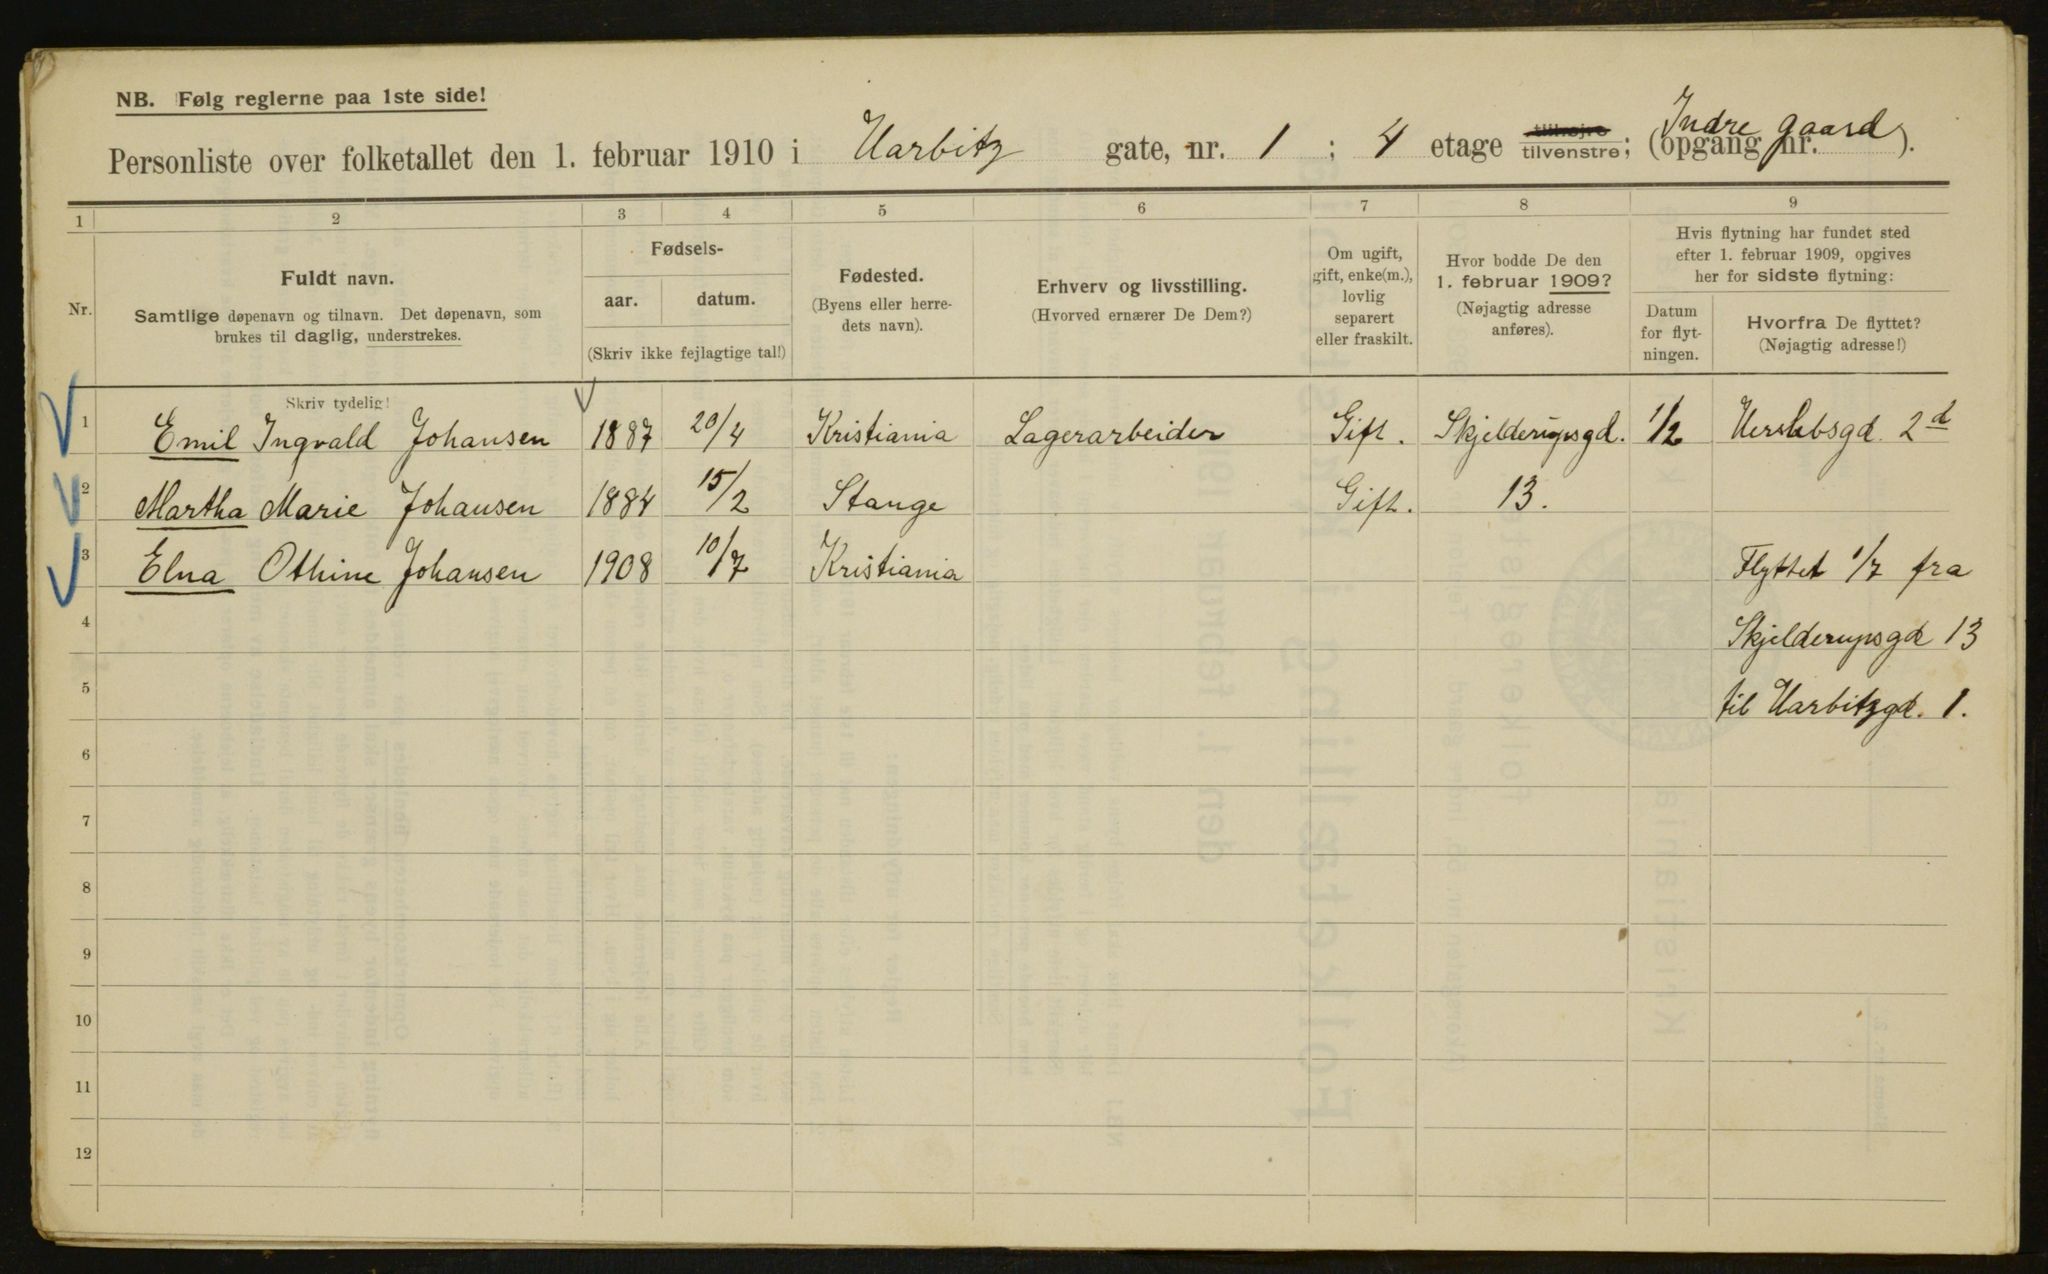 NB. Følg reglerne paa 1ste side!
Personliste over folketallet den 1. februar 1910 i Harbitz gate, nr. 1 ; 4 etage tilhøjre tilvenstre; (opgang nr. Indre gaard).
1 2 3 4 5 6 7 8 9
Nr.
Fuldt navn.
Samtlige døpenavn og tilnavn. Det døpenavn, som
brukes til daglig, understrekes.
Fødsels-
aar. datum.
(Skriv ikke fejlagtige tal!)
Fødested.
(Byens eller herre-
dets navn).
Erhverv og livsstilling.
(Hvorved ernærer De Dem?)
Om ugift,
gift, enke(m.),
lovlig
separert
eller fraskilt.
Hvor bodde De den
1. februar 1909?
(Nøjagtig adresse
anføres).
Hvis flytning har fundet sted
efter 1. februar 1909, opgives
her for sidste flytning:
Datum
for flyt-
ningen.
Hvorfra De flyttet?
(Nøjagtig adresse!)
Skriv tydelig!
1 Emil Ingvald Johansen 1887 20/4 Kristiania Lagerarbeider Gift. Skjelderupsgd. 1/2 Herslebsgd. 2d
2 Martha Marie Johansen 1884 15/2 Stange Gift. 13.
3 Elna Othine Johansen 1908 10/7 Kristiania Flyttet 1/7 fra
4 Skjelderupsgd 13
5 til Harbitzgd. 1.
6
7
8
9
10
11
12